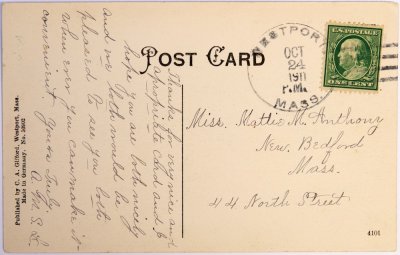 POST CARD
Thanks for very nice and
apropriate card and I
hope you are both nicely
and we both would be
pleased to see you both
when ever you can make it
convenient Yours truly.
A. M. S. L.
Published by C. A. Gifford, Westport, Mass.
Made in Germany, No. 38602
WESTPORT
OCT
24
1911
P.M.
MASS.
U.S. POSTAGE
ONE CENT
Miss. Hattie M. Anthony
New Bedford
Mass.
44 North Street
4101